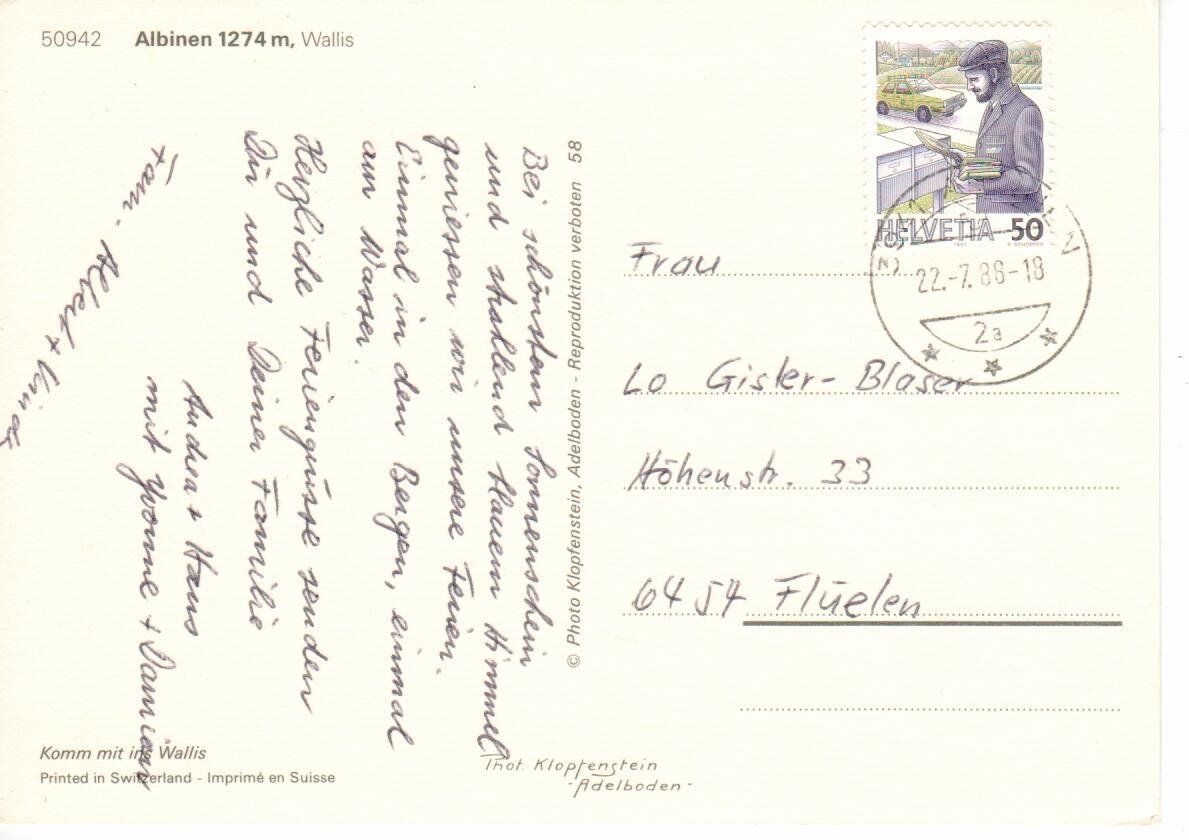 50942 Albinen 1274 m, Wallis
Bei schönstem Sonnenschein
und strahlend blauem Himmel
geniessen wir unsere Ferien.
Einmal in den Bergen, einmal
am Wasser.
Herzliche Feriengrüsse senden
Dir und Deiner Familie
Andrea + Hans
mit Yvonne + Damian
Fam.
Komm mit ins Wallis
Printed in Switzerland - Imprimé en Suisse
© Photo Klopfenstein, Adelboden - Reproduktion verboten 58
Phot. Klopfenstein
- Adelboden -
HELVETIA 50
1987 P. SCHOPFER
22.-7.88-18
2a
Frau
Lo Gisler-Blaser
Höhenstr. 33
6454 Flüelen